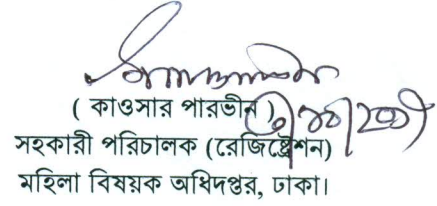 ( কাওসার পারভীন )
সহকারী পরিচালক (রেজিষ্ট্রেশন)
মহিলা বিষয়ক অধিদপ্তর, ঢাকা।